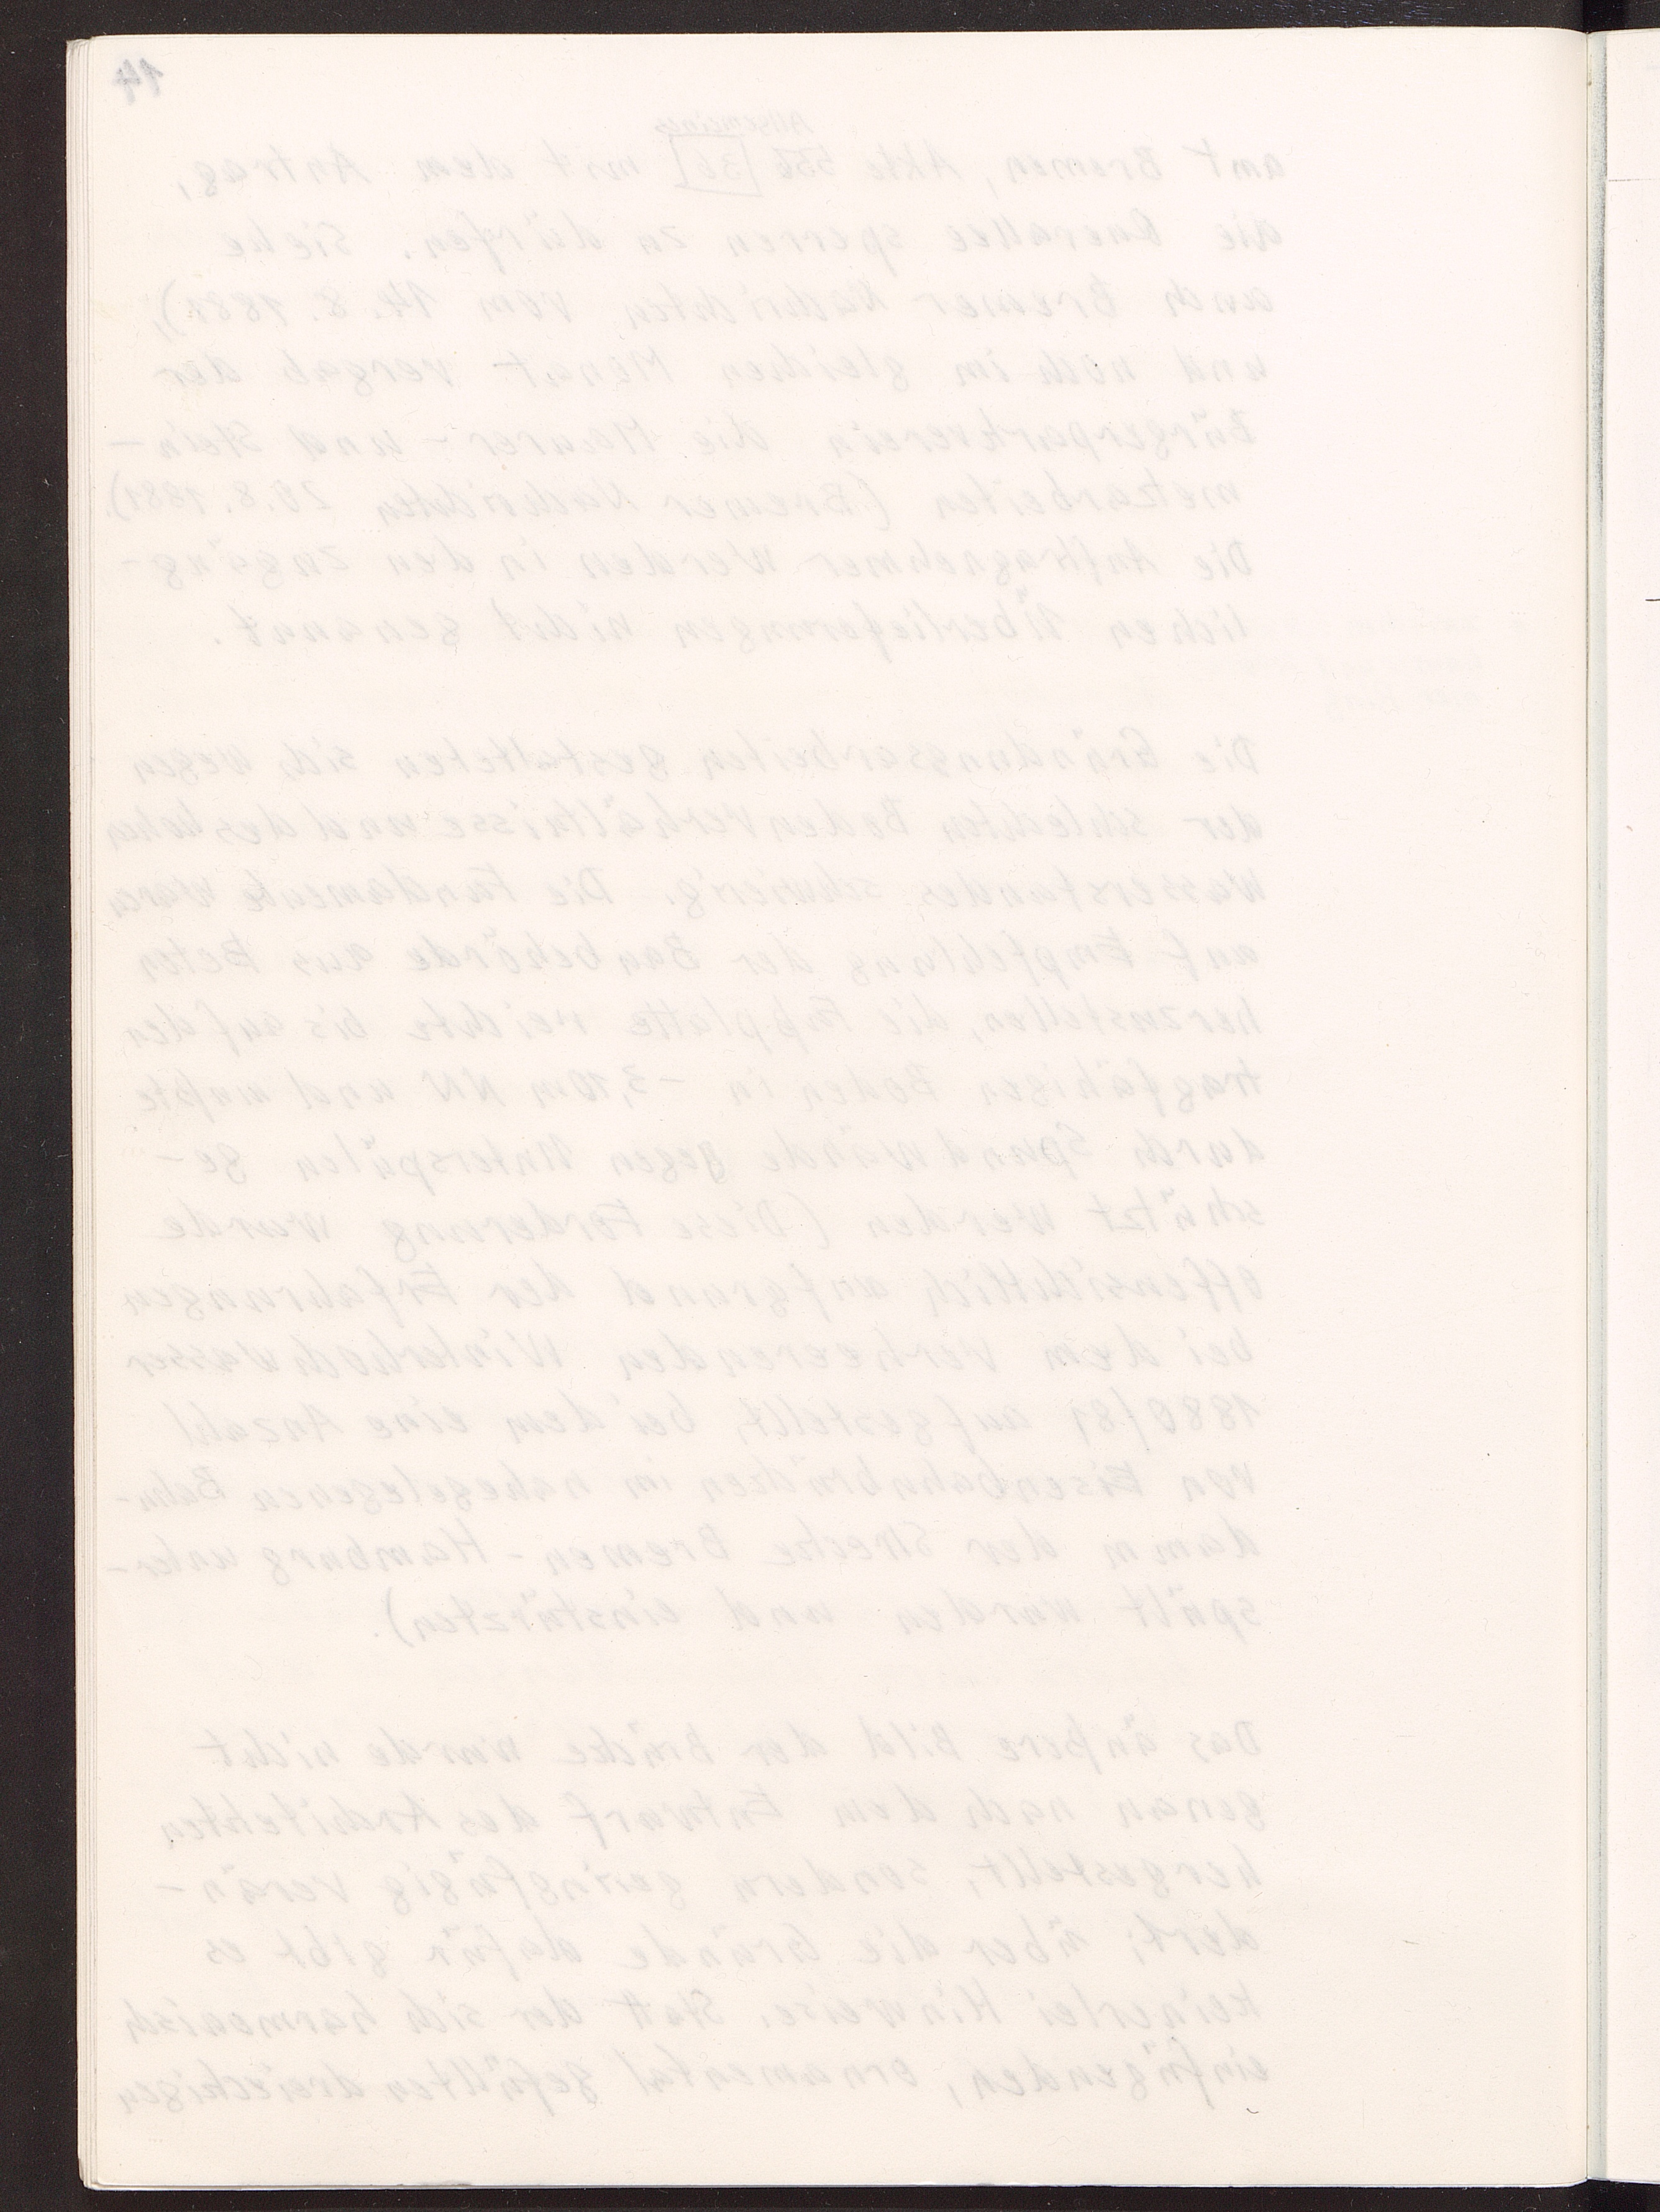 14
Allgemeines
amt Bremen, Akte 556 [36] mit dem Antrag,
die Querallee sperren zu dürfen. Siehe
auch Bremer Nachrichten vom 14. 8. 1881),
und noch im gleichen Monat vergab der
Bürgerparkverein die Maurer- und Stein-
metzarbeiten (Bremer Nachrichten 20.8.1881).
Die Auftragnehmer werden in den zugäng-
lichen Überlieferungen nicht genannt.
Die Gründungsarbeiten gestalteten sich wegen
der schlechten Bodenverhältnisse und des hohen
Wasserstandes schwierig. Die Fundamente waren
auf Empfehlung der Baubehörde aus Beton
herzustellen, die Fußplatte reichte bis auf den
tragfähigen Boden in -3,10m NN und mußte
durch Spundwände gegen Unterspülen ge-
schützt werden (Diese Forderung wurde
offensichtlich aufgrund der Erfahrungen
bei dem verheerenden Winterhochwasser
1880/81 aufgestellt, bei dem eine Anzahl
von Eisenbahnbrücken im nahegelegenen Bahn-
damm der Strecke Bremen - Hamburg unter-
spült wurden und einstürzten).
Das äußere Bild der Brücke wurde nicht
genau nach dem Entwurf des Architekten
hergestellt, sondern geringfügig verän-
dert; über die Gründe dafür gibt es
keinerlei Hinweise. Statt der sich harmonisch
einfügenden, ornamental gefüllten dreieckigen